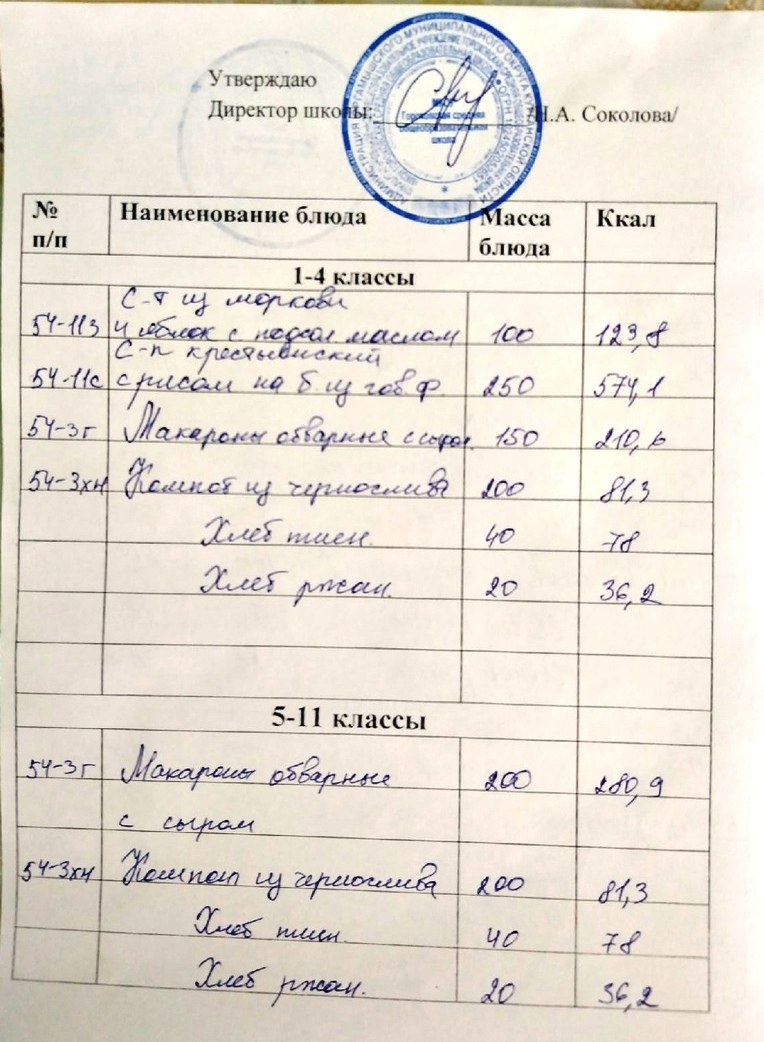 Утверждаю
Директор школы: /Н.А. Соколова/
Торопинская средняя
общеобразовательная
школа
№ п/п Наименование блюда Масса блюда Ккал
1-4 классы
С-т из моркови
54-11з и яблок с подсол маслом 100 123,8
С-п крестьянский
54-11с с рисом на б. из гов. ф. 250 574,1
54-3г Макароны отварные с сыром 150 210,6
54-3хн Компот из чернослива 200 81,3
Хлеб пшен. 40 78
Хлеб ржан. 20 36,2
5-11 классы
54-3г Макароны отварные 200 280,9
с сыром
54-3хн Компот из чернослива 200 81,3
Хлеб пшен. 40 78
Хлеб ржан. 20 36,2